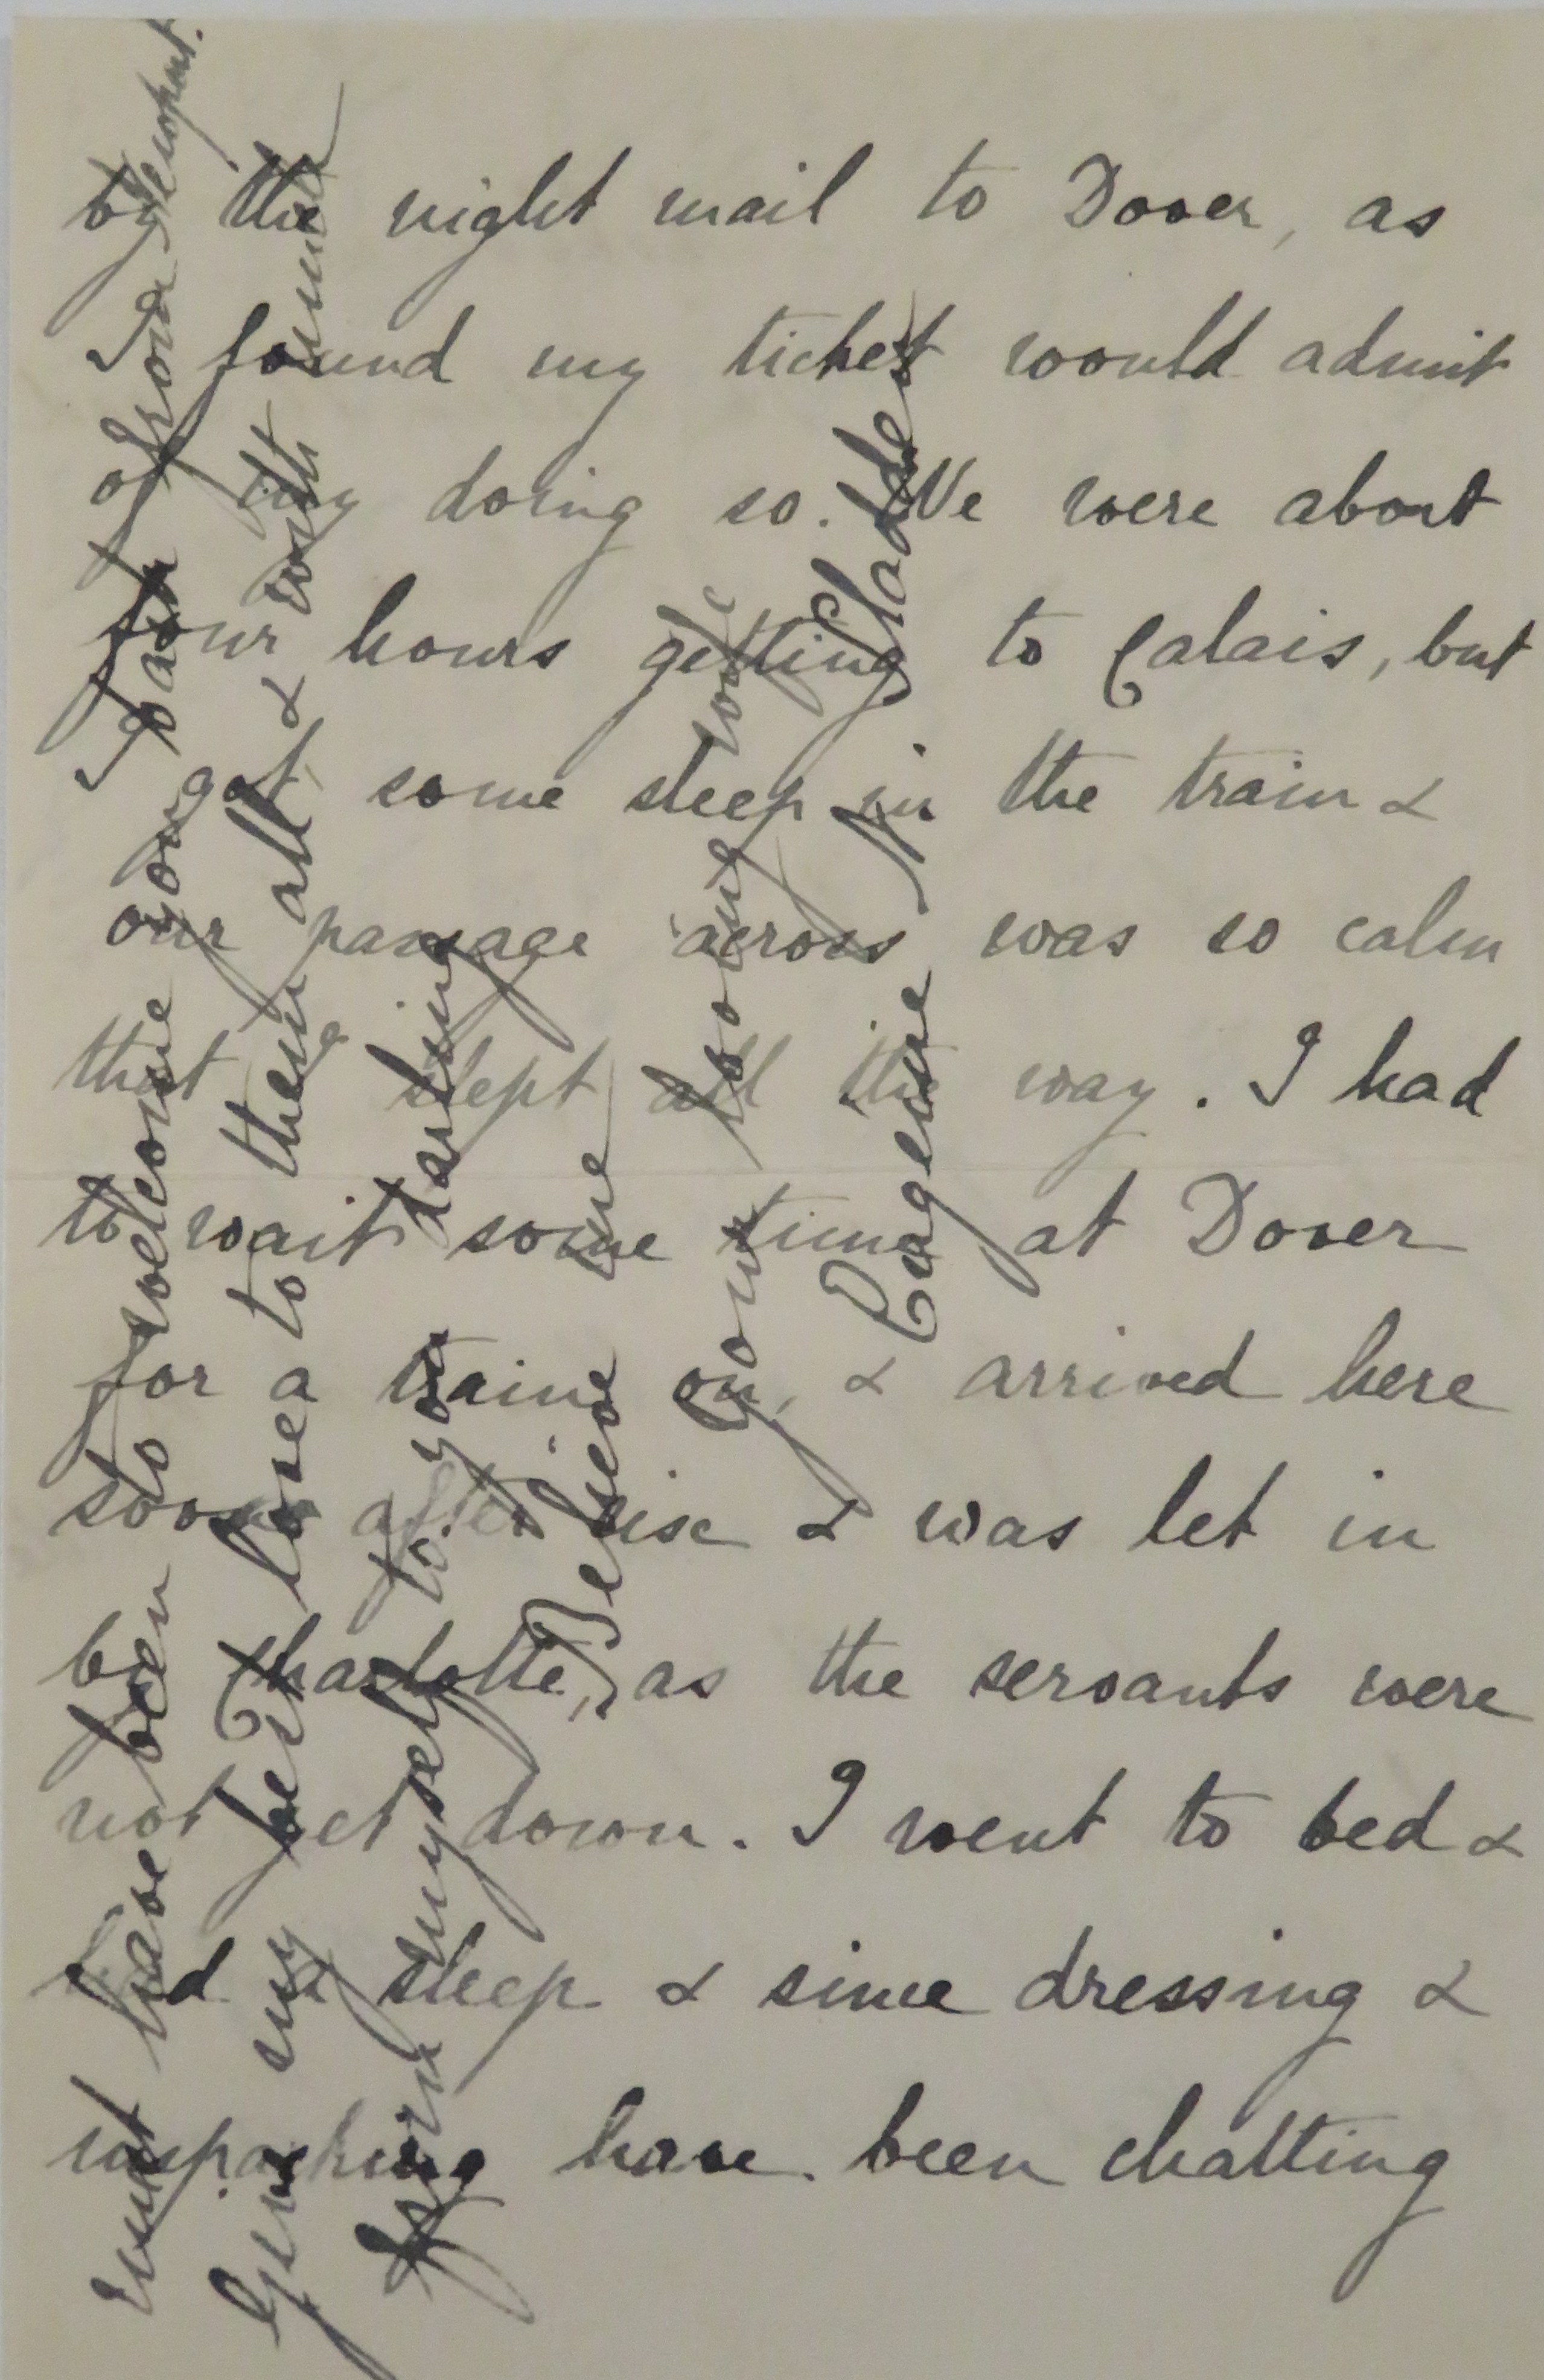 by the night mail to Dover, as
I found my ticket would admit
of my doing so. We were about
four hours getting to Calais, but
I got some sleep in the train &
our passage across was so calm
that I slept all the way. I had
to wait some time at Dover
for a train on, & arrived here
soon after six & was let in
by Charlotte, as the servants were
not yet down. I went to bed &
had a sleep & since dressing &
unpacking have been chatting
must have been to welcome you
Give my best love to them all & with much
from myself to you darling
Believe me
Your loving wife
Eugenie N.